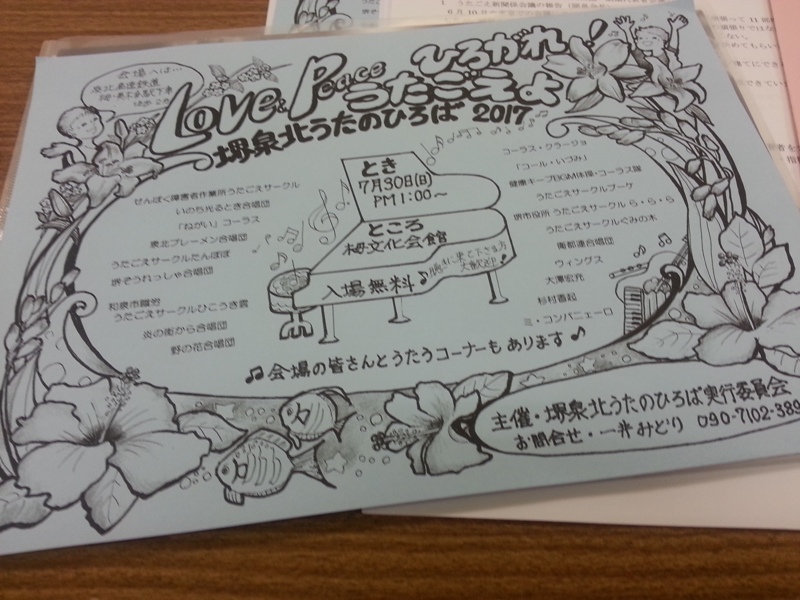 会場へは…
泉北高速鉄道
栂・美木多駅下車
徒歩2分
Love & Peace
ひろがれ!
うたごえよ
堺泉北うたのひろば 2017
せんぼく障害者作業所うたごえサークル
いのち光るとき合唱団
「ねがい」コーラス
泉北ブレーメン合唱団
うたごえサークルたんぽぽ
堺ぞうれっしゃ合唱団
和泉市職労
うたごえサークルひこうき雲
炎の街から合唱団
野の花合唱団
とき
7月30日(日)
PM1:00~
ところ
栂文化会館
入場無料
聴きに来て下さる方
大歓迎
コーラス・クラージョ
「コール・いづみ」
健康キープBGM体操・コーラス隊
うたサークルブーケ
堺市役所 うたごえサークル ら・ら・ら
うたごえサークルぐみの木
南都連合唱団
ウィングス
大澤宏充
杉村香起
ミ・コンパニェーロ
会場の皆さんとうたうコーナーも あります
主催・堺泉北うたのひろば実行委員会
お問合せ・一井みどり 090-7102-389
1 うたごえ新聞係会議の報告
6月10